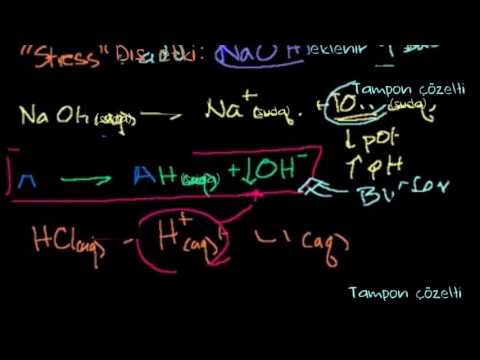 "Stress" Dış etki: NaOH eklenir
Tampon çözelti
NaOH(suda) → Na⁺(suda) + (suda)
↓ pOH
↑ pH
A → AH(suda) + ↓OH⁻
HCl(aq) - H⁺(aq) (aq)
Tampon çözelti